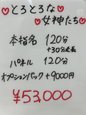 とろとろな
女神たち
本指名 120分
+30分延長
パネル 120分
オプションパック+9000円
¥53,000